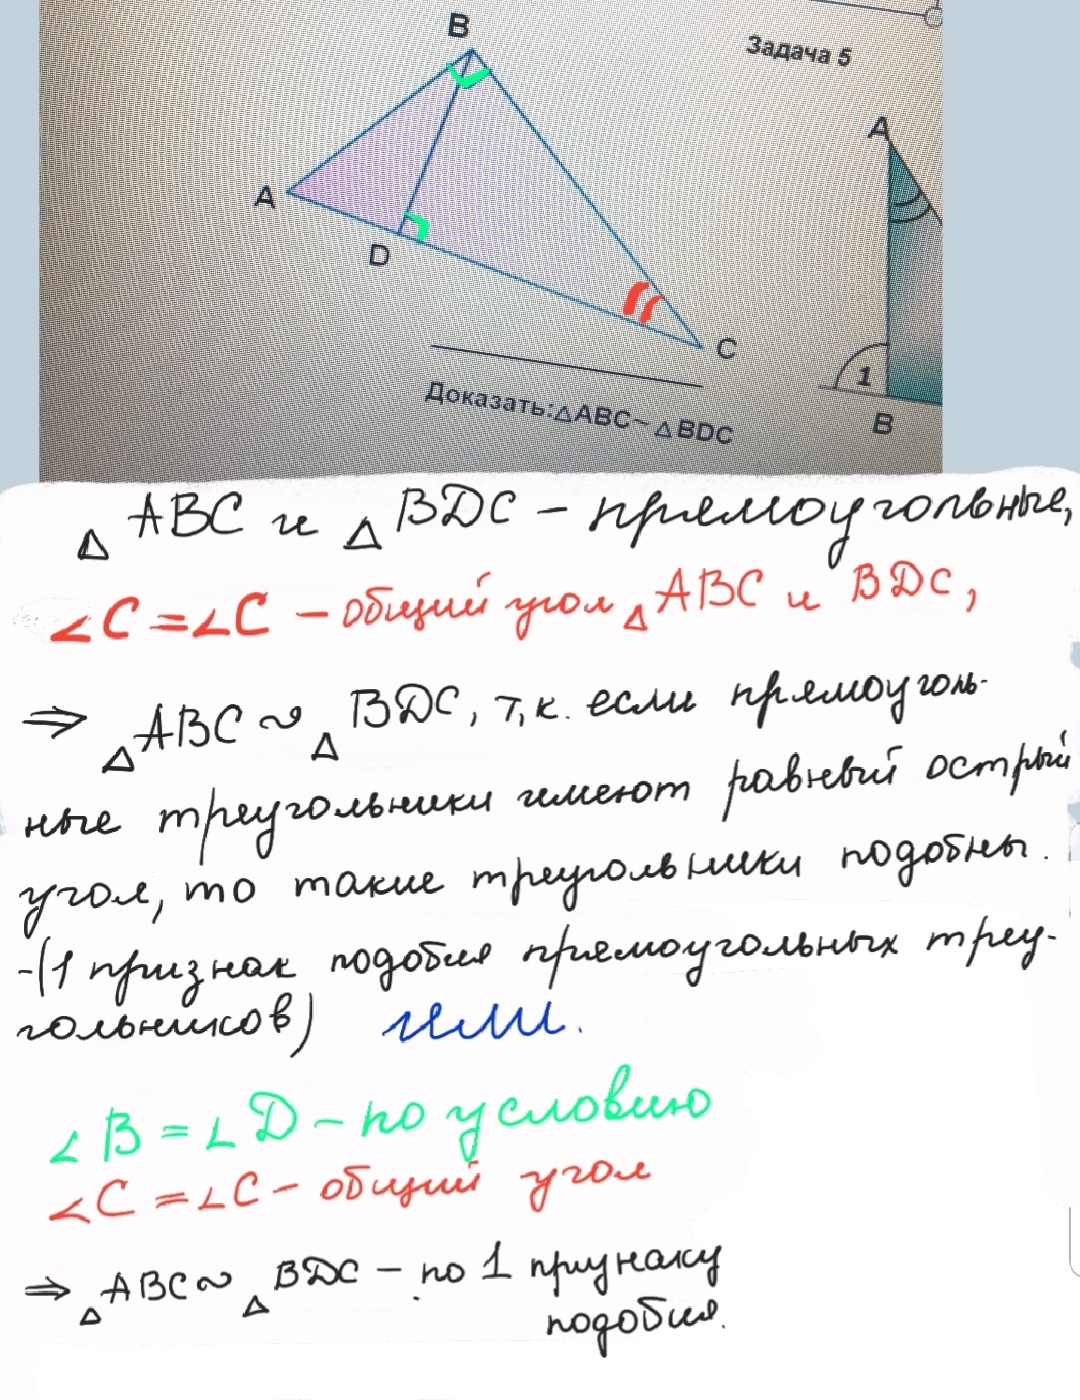 B
Задача 5
A
A
D
C
1
B
Доказать:△ABC~△BDC
△ABC и △BDC – прямоугольные,
∠C=∠C – общий угол △ABC и BDC,
⇒ △ABC ∾ △BDC, т.к. если прямоуголь-
ные треугольники имеют равный острый
угол, то такие треугольники подобны.
-(1 признак подобия прямоугольных треу-
гольников) или.
∠B = ∠D – по условию
∠C = ∠C – общий угол
⇒ △ABC ∾ △BDC – по 1 признаку
подобия.